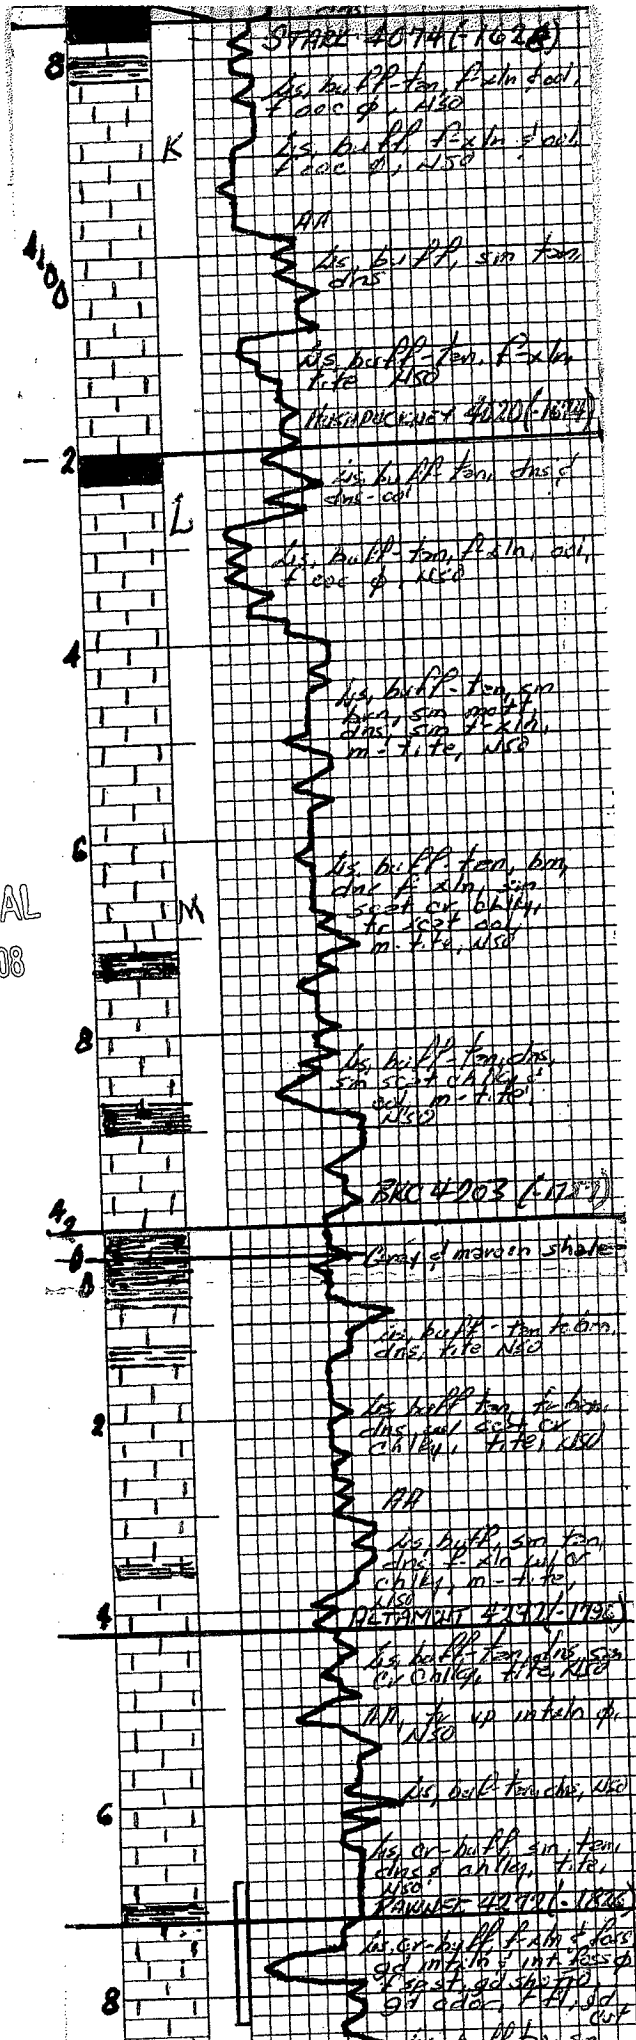 STARK 4074 (-162
8
Ls, buff-tan, f-xln & ool,
f ooc φ, NSO
K
Ls, buff, f-xln & ool,
f ooc φ, NSO
AA
4100
Ls, buff, sm tan,
dns
Ls, buff-tan, f-xln,
tite NSO
HUSHPUCKNEY 4120 (-1674)
2
Ls, buff-tan, dns &
dns-ool
L
Ls, buff-tan, f-xln, ool,
f ooc φ, NSO
4
Ls, buff-tan, sm
brn, sm mott,
dns, sm f-xln,
m-tite, NSO
6
Ls, buff tan, brn,
dns f-xln, sm
scat cr chlky,
tr scat ool,
m-tite, NSO
AL
08
M
8
Ls, buff-tan, dns,
sm scat chlky &
ool, m-tite,
NSO
BKC 4203
42
00
Grey & maroon shale
Ls, buff-tan tr brn,
dns, tite NSO
2
Ls, buff tan, tr brn,
dns w/ scat cr
chlky, tite, NSO
AA
Ls, buff, sm tan,
dns f-xln w/ cr
chlky, m-tite,
NSO
4
ALTAMONT
Ls, buff-tan, dns, sm
cr chlky, tite, NSO
AA, tr vp intxln φ,
NSO
Ls, buff-tan, dns, NSO
6
Ls, cr-buff, sm tan,
dns & chlky, tite,
NSO
PAWNEE 4272 (-1826)
Ls, cr-buff, f-xln & foss
gd intxln & int foss φ
f spst, gd show
8
gd odor,
cut